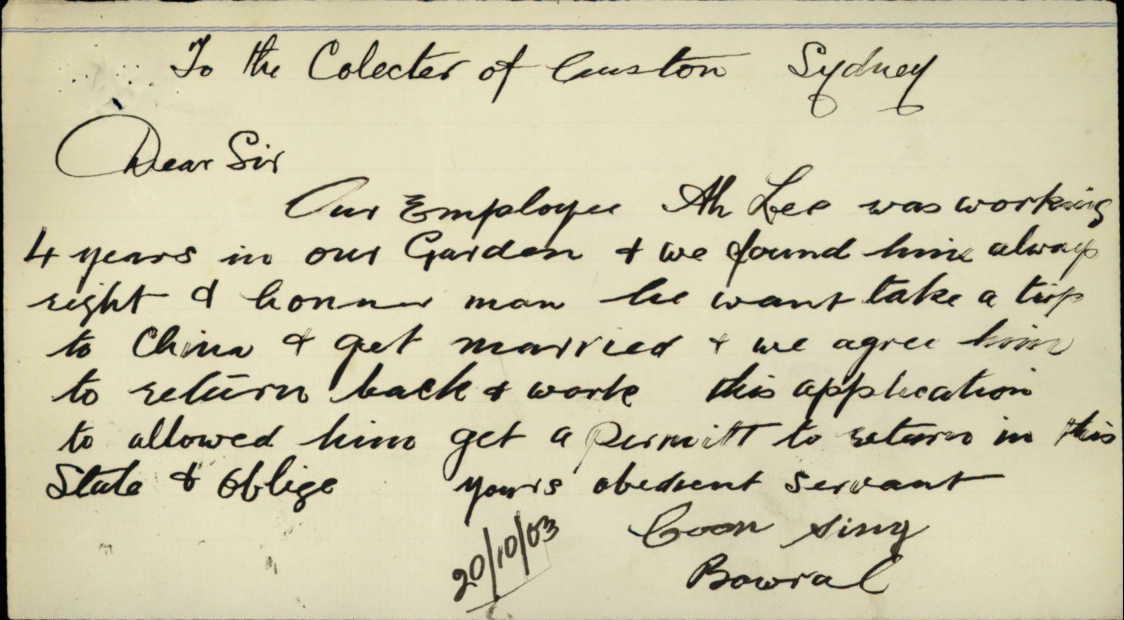 To the Colecter of Custon Sydney
Dear Sir
Our Employee Ah Lee was working
4 years in our Garden & we found him always
right & honner man he want take a trip
to China & get married & we agree him
to return back & work this application
to allowed him get a permitt to return in this
State & oblige yours obedient servant
20/10/03 Coon Sing
Bowral